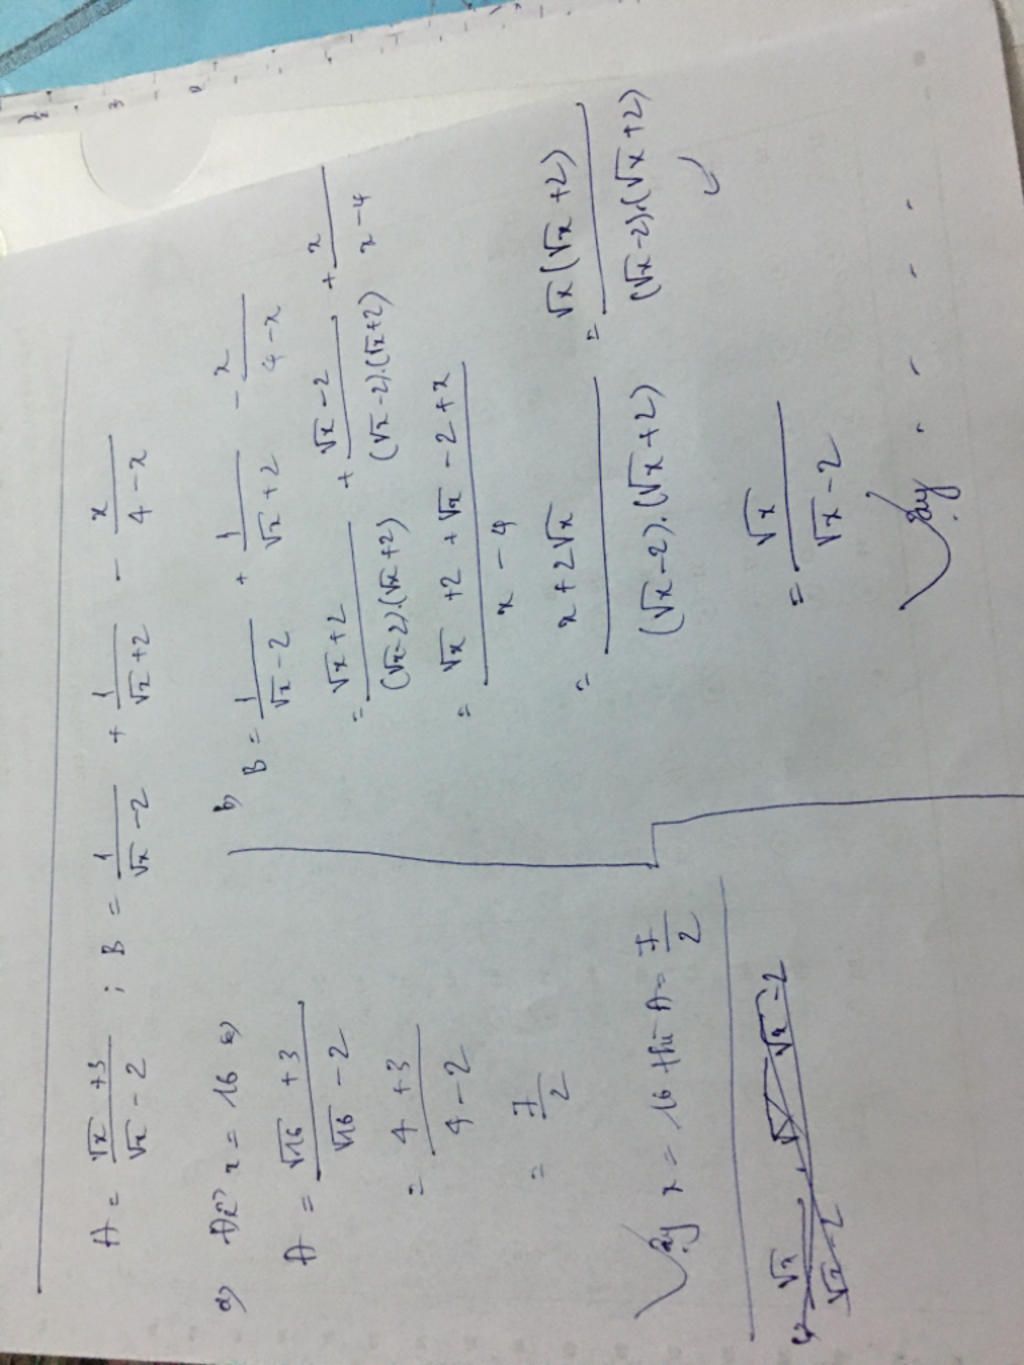 A = \frac{\sqrt{x}+3}{\sqrt{x}-2} ; B = \frac{1}{\sqrt{x}-2} + \frac{1}{\sqrt{x}+2} - \frac{x}{4-x}
a) x = 16 =>
A = \frac{\sqrt{16}+3}{\sqrt{16}-2}
= \frac{4+3}{4-2}
= \frac{7}{2}
Vậy x = 16 thì A = \frac{7}{2}
b)
B = \frac{1}{\sqrt{x}-2} + \frac{1}{\sqrt{x}+2} - \frac{x}{4-x}
= \frac{\sqrt{x}+2}{(\sqrt{x}-2).(\sqrt{x}+2)} + \frac{\sqrt{x}-2}{(\sqrt{x}-2).(\sqrt{x}+2)} + \frac{x}{x-4}
= \frac{\sqrt{x}+2+\sqrt{x}-2+x}{x-4}
= \frac{x+2\sqrt{x}}{(\sqrt{x}-2).(\sqrt{x}+2)} = \frac{\sqrt{x}(\sqrt{x}+2)}{(\sqrt{x}-2).(\sqrt{x}+2)}
= \frac{\sqrt{x}}{\sqrt{x}-2}
Vậy . - - -